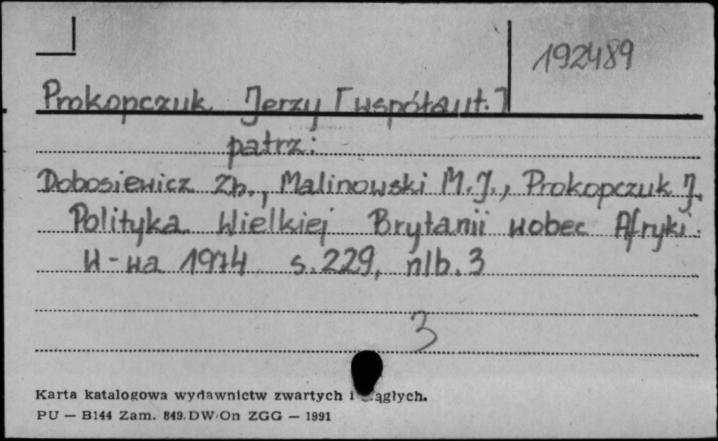 192489
Prokopczuk Jerzy [współaut.]
patrz:
Dobosiewicz Zb., Malinowski M.J., Prokopczuk J.
Polityka Wielkiej Brytanii wobec Afryki.
W-wa 1974 s.229, nlb.3
3
Karta katalogowa wydawnictw zwartych i ciągłych.
PU — B144 Zam. 849. DW/On ZGG — 1991